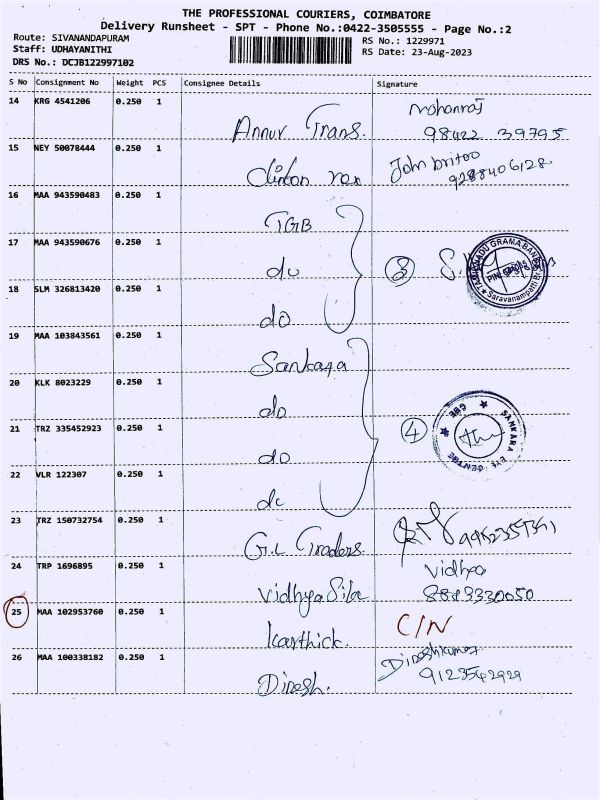 THE PROFESSIONAL COURIERS, COIMBATORE
Delivery Runsheet - SPT - Phone No.:0422-3505555 - Page No.:2
Route: SIVANANDAPURAM
Staff: UDHAYANITHI
DRS No.: DCJB122997102
RS No.: 1229971
RS Date: 23-Aug-2023
S No Consignment No Weight PCS Consignee Details Signature
14 KRG 4541206 0.250 1 Annur Trans. Mohanraj
98422 39795
15 NEY 50078444 0.250 1 Clinton rex John britoo
9288406128
16 MAA 943590483 0.250 1 TGB
17 MAA 943590676 0.250 1 do 3 TAMILNADU GRAMA BANK Saravanampatti
18 SLM 326813420 0.250 1 do
19 MAA 103843561 0.250 1 Sankara
20 KLK 8023229 0.250 1 do
21 TRZ 335452923 0.250 1 do 4 SANKARA EYE CENTRE CBE
22 VLR 122307 0.250 1 do
23 TRZ 150732754 0.250 1 G.L Traders.
24 TRP 1696895 0.250 1 Vidhya Sila Vidhya
8883330050
25 MAA 102953760 0.250 1 Karthick. C/N
26 MAA 100338182 0.250 1 Dinesh. Dineshkumar
9123542929